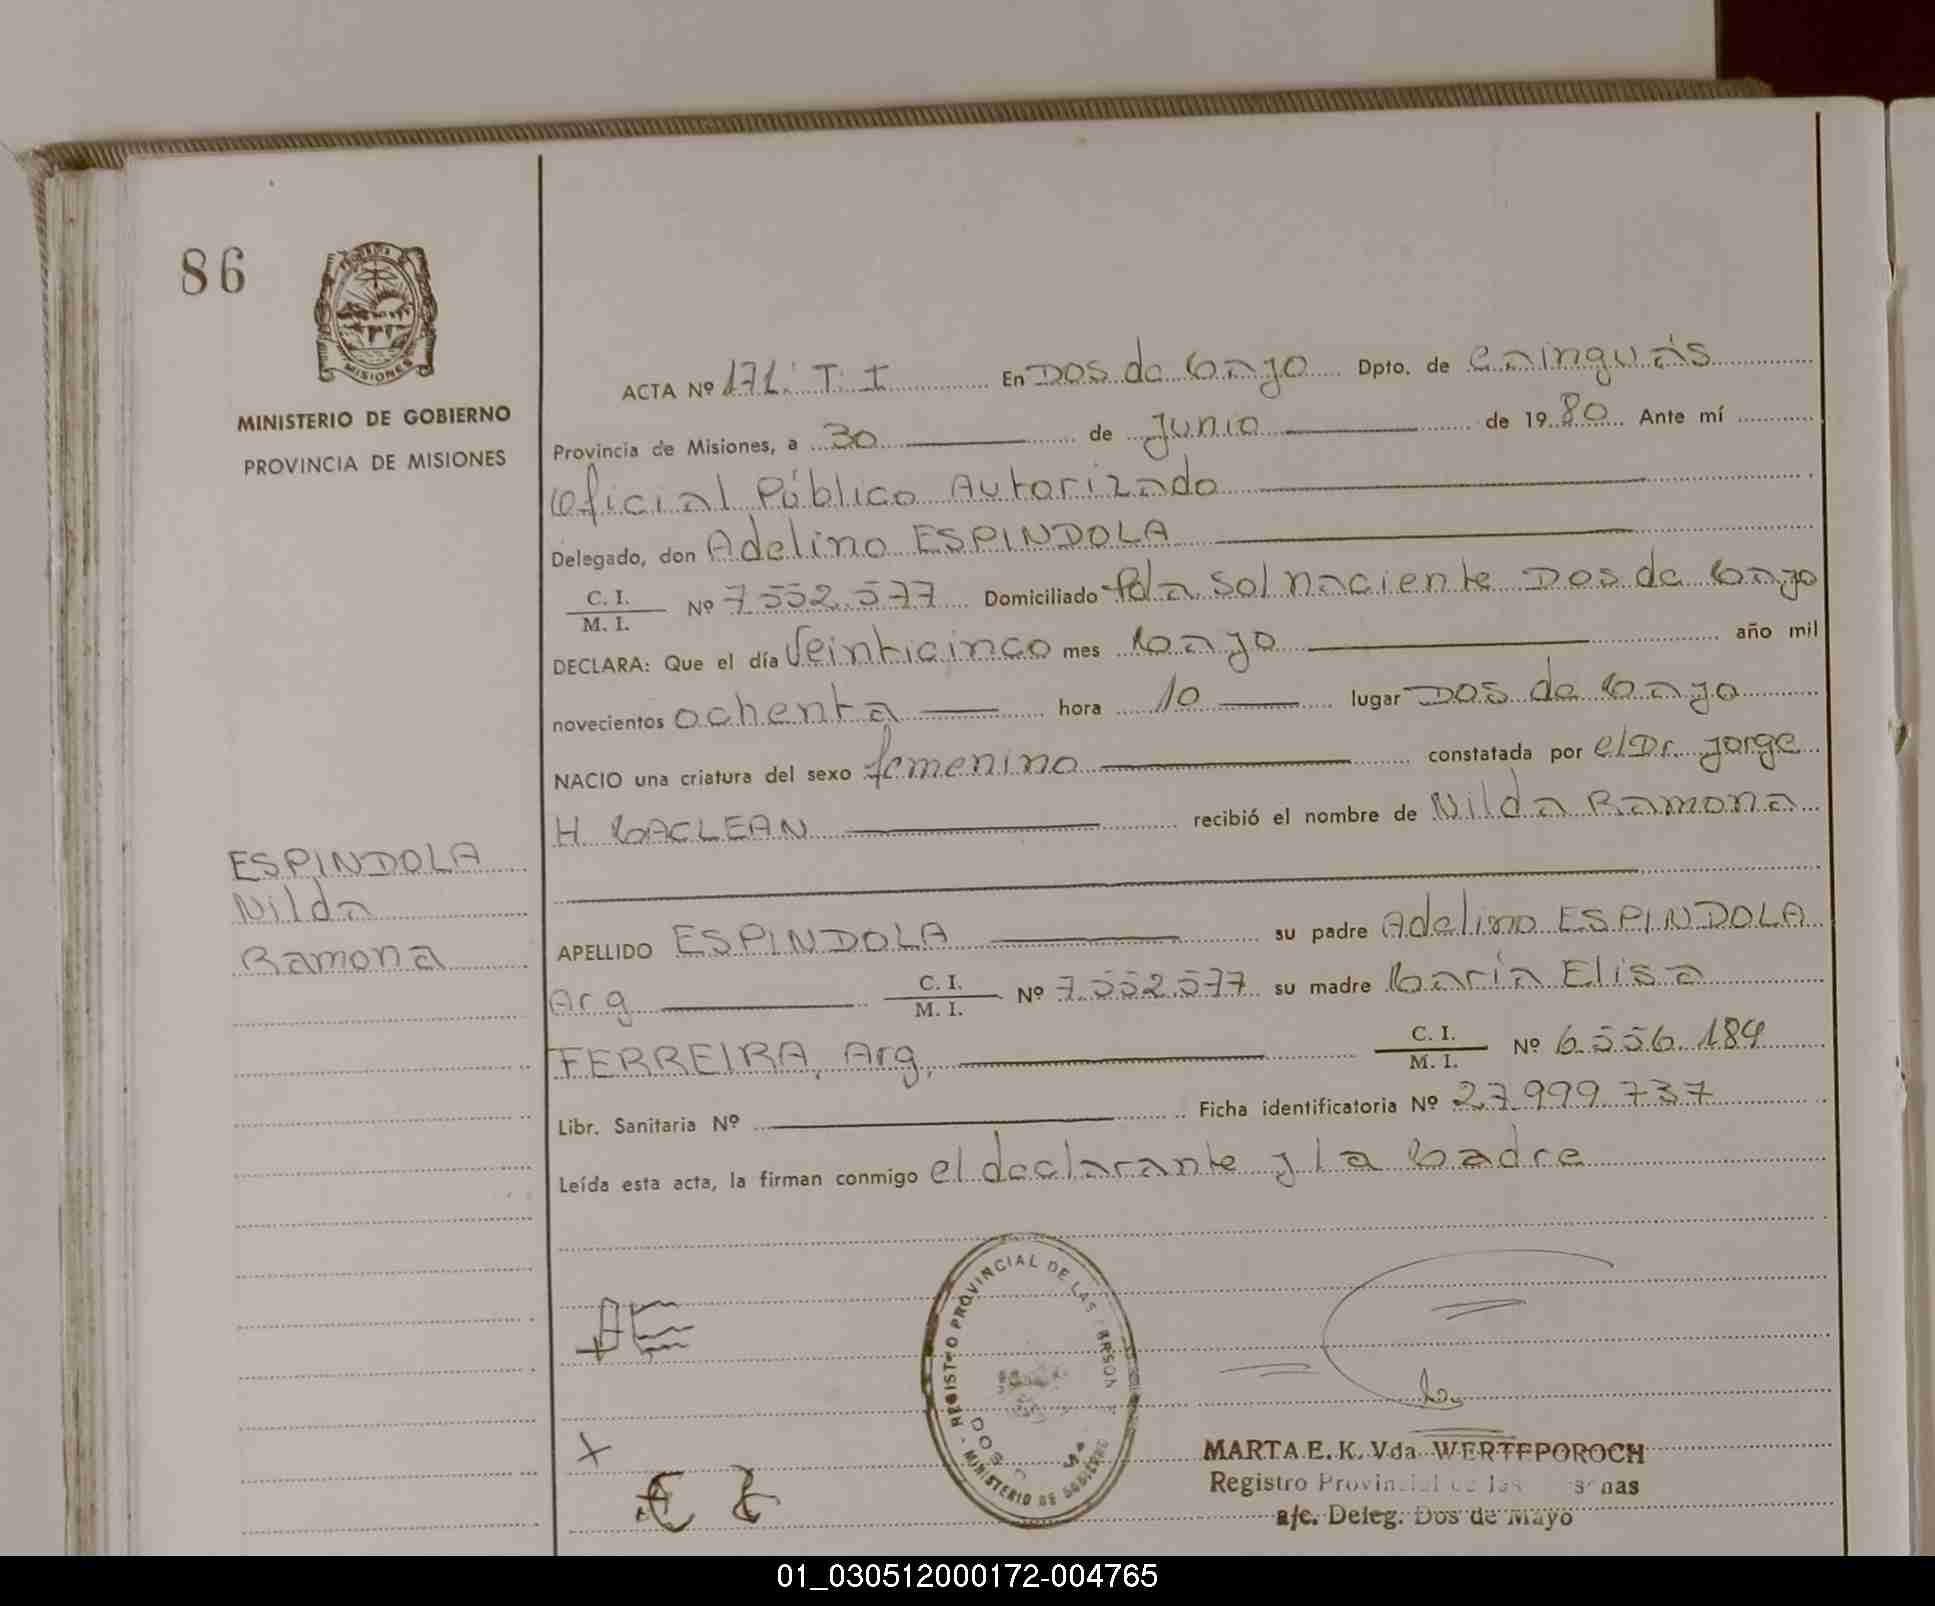 86
MISIONES
MINISTERIO DE GOBIERNO
PROVINCIA DE MISIONES
ESPINDOLA
Nilda
Ramona
ACTA Nº 171. T. I En Dos de Mayo Dpto. de Cainguás
Provincia de Misiones, a 30 de Junio de 1980 Ante mí
Oficial Público Autorizado
Delegado, don Adelino ESPINDOLA
C. I.
M. I.
Nº 7552.577 Domiciliado Pda Sol naciente Dos de Mayo
DECLARA: Que el día Veinticinco mes Mayo año mil
novecientos ochenta hora 10 lugar Dos de Mayo
NACIO una criatura del sexo femenino constatada por el Dr. Jorge
H. MACLEAN recibió el nombre de Nilda Ramona
APELLIDO ESPINDOLA su padre Adelino ESPINDOLA
Arg C. I. M. I. Nº 7.552.577 su madre María Elisa
FERREIRA, Arg, C. I. M. I. Nº 6.556.184
Libr. Sanitaria Nº Ficha identificatoria Nº 27.999.737
Leída esta acta, la firman conmigo el declarante y la Madre
REGISTRO PROVINCIAL DE LAS
MINISTERIO DE GOBIERNO
MARTA E. K. Vda. WERTEPOROCH
Registro Provincial de las
a/c. Deleg. Dos de Mayo
01_030512000172-004765